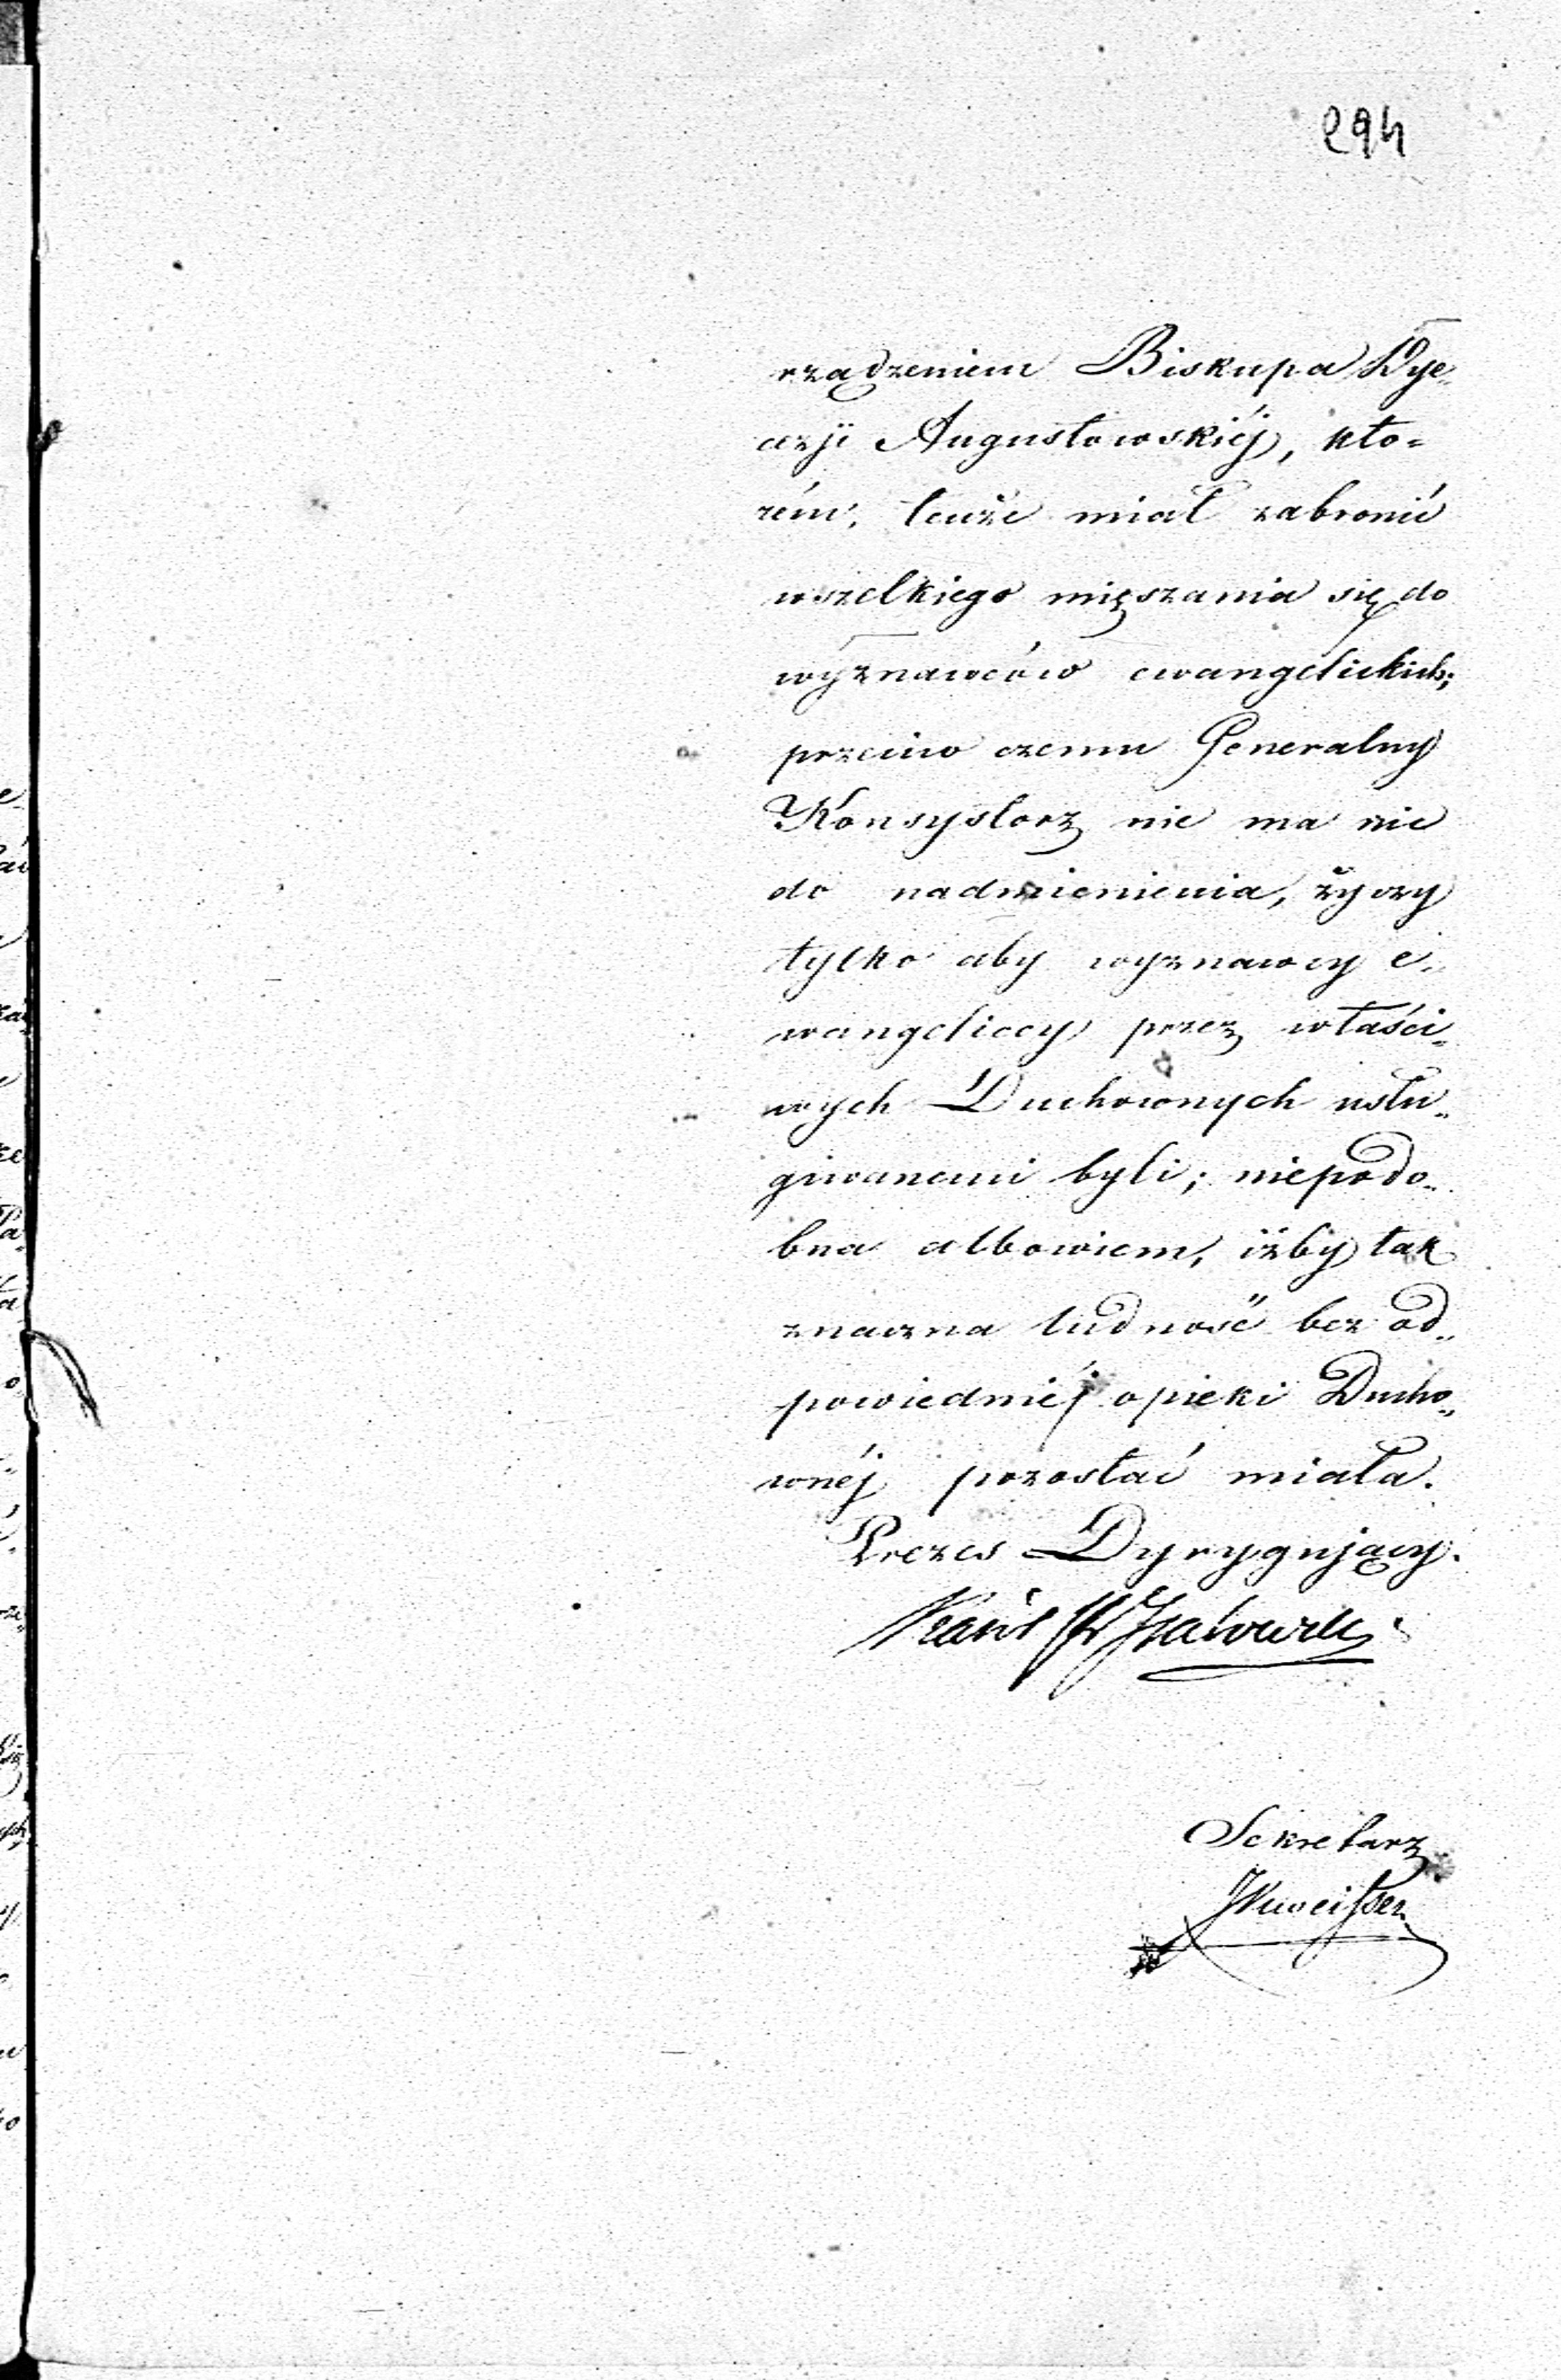 294
rządzeniem Biskupa Dye„
cezji Augustowskiéj, któ=
rém, tenże miał zabronić
wszelkiego mięszania się do
wyznawców ewangelickich;
przeciw czemu Generalny
Konsystorz nie ma nic
do nadmienienia, życzy
tylko aby wyznawcy e„
wangeliccy przez właści„
wych Duchownych usłu„
giwanemi byli; niepodo„
bna albowiem, iżby tak
znaczna ludność bez od„
powiedniéj opieki Ducho„
wnéj pozostać miała.
Prezes Dyrygujący.
Sekretarz